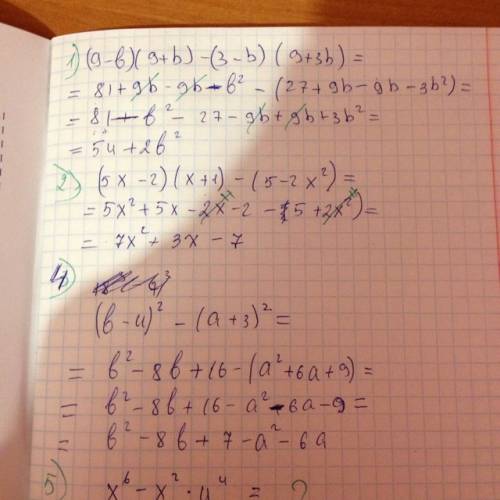 1) (9-b)(9+b)-(3-b)(9+3b)=
= 81+9b-9b-b² - (27+9b-9b-3b²)=
= 81-b² - 27-9b+9b+3b²=
= 54+2b²
2) (5x-2)(x+1)-(5-2x²)=
= 5x²+5x-2x-2 - (5+2x²)=
= 7x²+3x-7
4)
(b-4)² - (a+3)² =
= b²-8b+16-(a²+6a+9)=
= b²-8b+16-a²-6a-9=
= b²-8b+7-a²-6a
5) x⁶-x²·4⁴ = ?